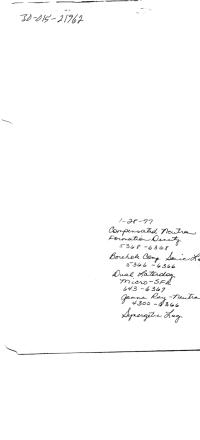 30-015-21962
1-28-77
Compensated Neutron
Formation Density
5368-6368
Borehole Comp Sonic Lo
5366-6366
Dual Laterolog
Micro-SFL
643-6367
Gamma Ray-Neutro
4300-6366
Synergetic Log